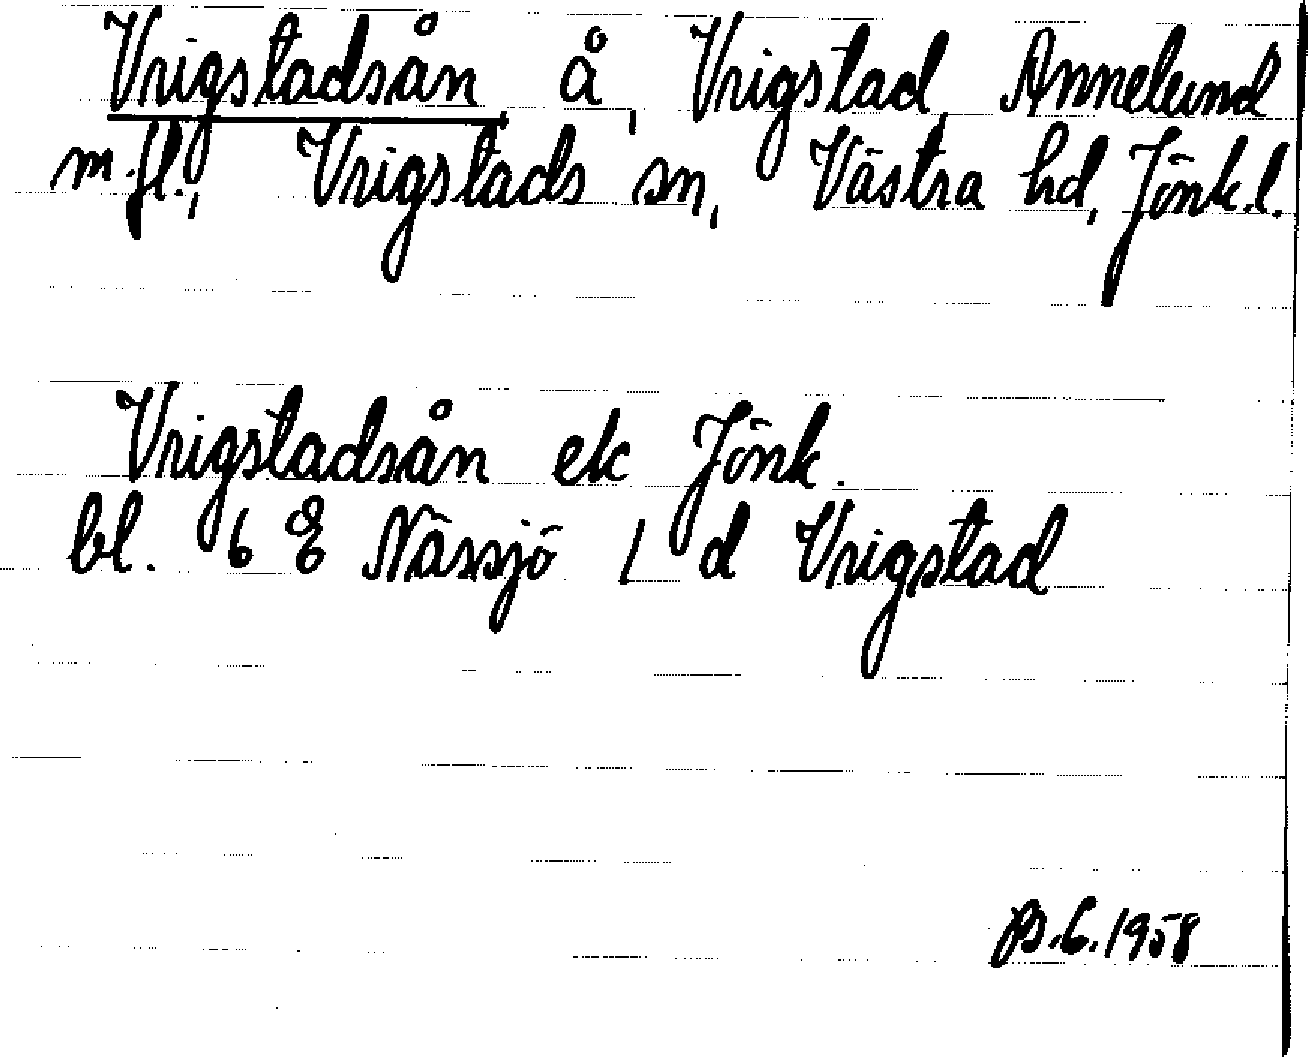 Vrigstadsån, å, Vrigstad, Annelund
m.fl., Vrigstads sn, Västra hd, Jönk.l.
Vrigstadsån ek Jönk.
bl. 6 E Nässjö 1 d Vrigstad
1958